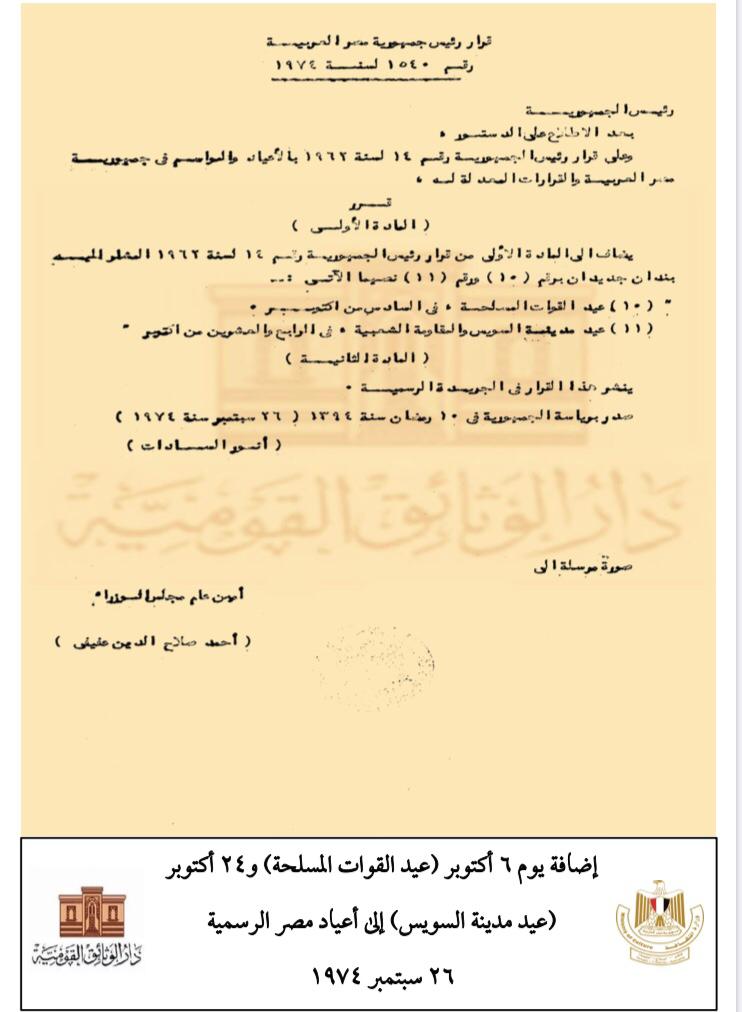 قرار رئيس جمهورية مصر العربيـــة
رقـــم ١٥٤٠ لسنـــة ١٩٧٤
رئيس الجمهوريـــة
بعد الاطلاع على الدستـــور ٠
وعلى قرار رئيس الجمهوريـة رقـم ١٤ لسنة ١٩٦٢ بالأعياد والمواسـم فى جمهوريـــة
مصر العربيـة والقرارات المعدلة لـه ٠
قـــرر
( المادة الأولـــى )
يضاف الى المادة الأولى من قرار رئيس الجمهوريـة رقـم ١٤ لسنة ١٩٦٢ المشار اليـــه
بندان جديدان برقم ( ١٠ ) ورقم ( ١١ ) نصهما الآتـى :ــ
" ( ١٠ ) عيد القوات المسلحـة ، فى السادس من اكتوبـــر ٠
( ١١ ) عيد مدينــة السويس والمقاومة الشعبية ، فى الرابع والعشرين من اكتوبر "
( المادة الثانيـــة )
ينشر هذا القرار فى الجريدة الرسميـــة ٠
صدر برياسة الجمهورية فى ١٠ رمضان سنة ١٣٩٤ ( ٢٦ سبتمبر سنة ١٩٧٤ )
( أنـور الســـادات )
دار الوثائق القومية
صورة مرسلة الى
أمين عام مجلس الـوزراء
( أحمد صلاح الدين عفيفى )
إضافة يوم ٦ أكتوبر (عيد القوات المسلحة) و٢٤ أكتوبر
(عيد مدينة السويس) إلى أعياد مصر الرسمية
٢٦ سبتمبر ١٩٧٤
دار الوثائق القومية
وزارة الثقافة
Ministry of culture